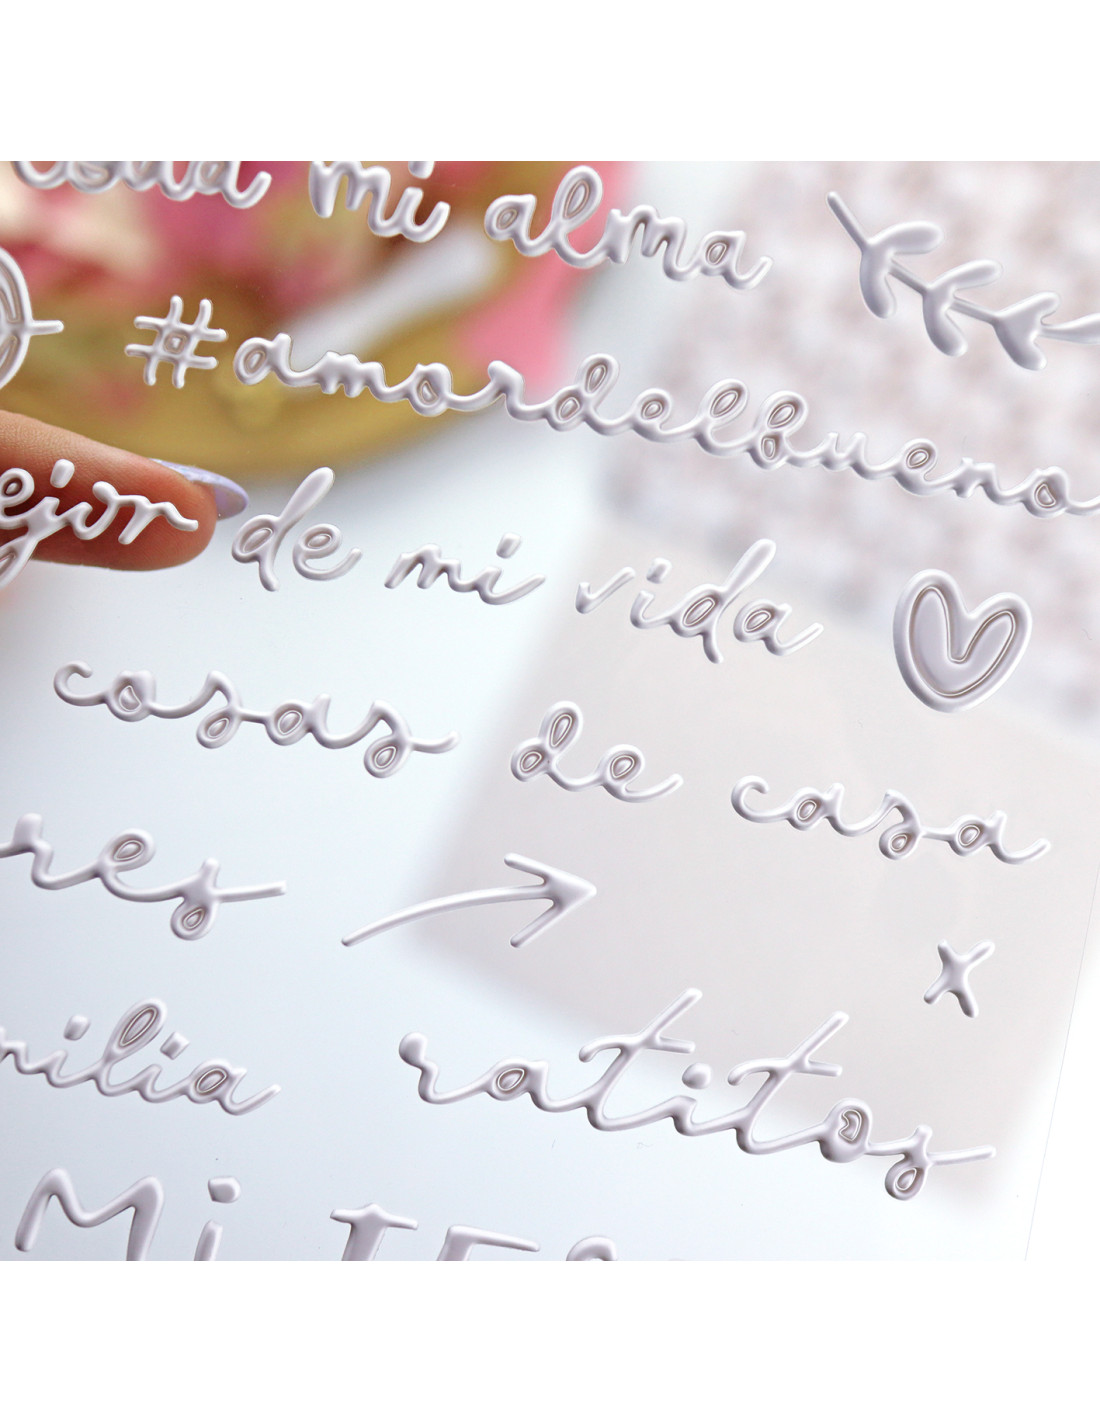 mi alma
#amordelbueno
ejor de mi vida
cosas de casa
res
milia
ratitos
Mi TES